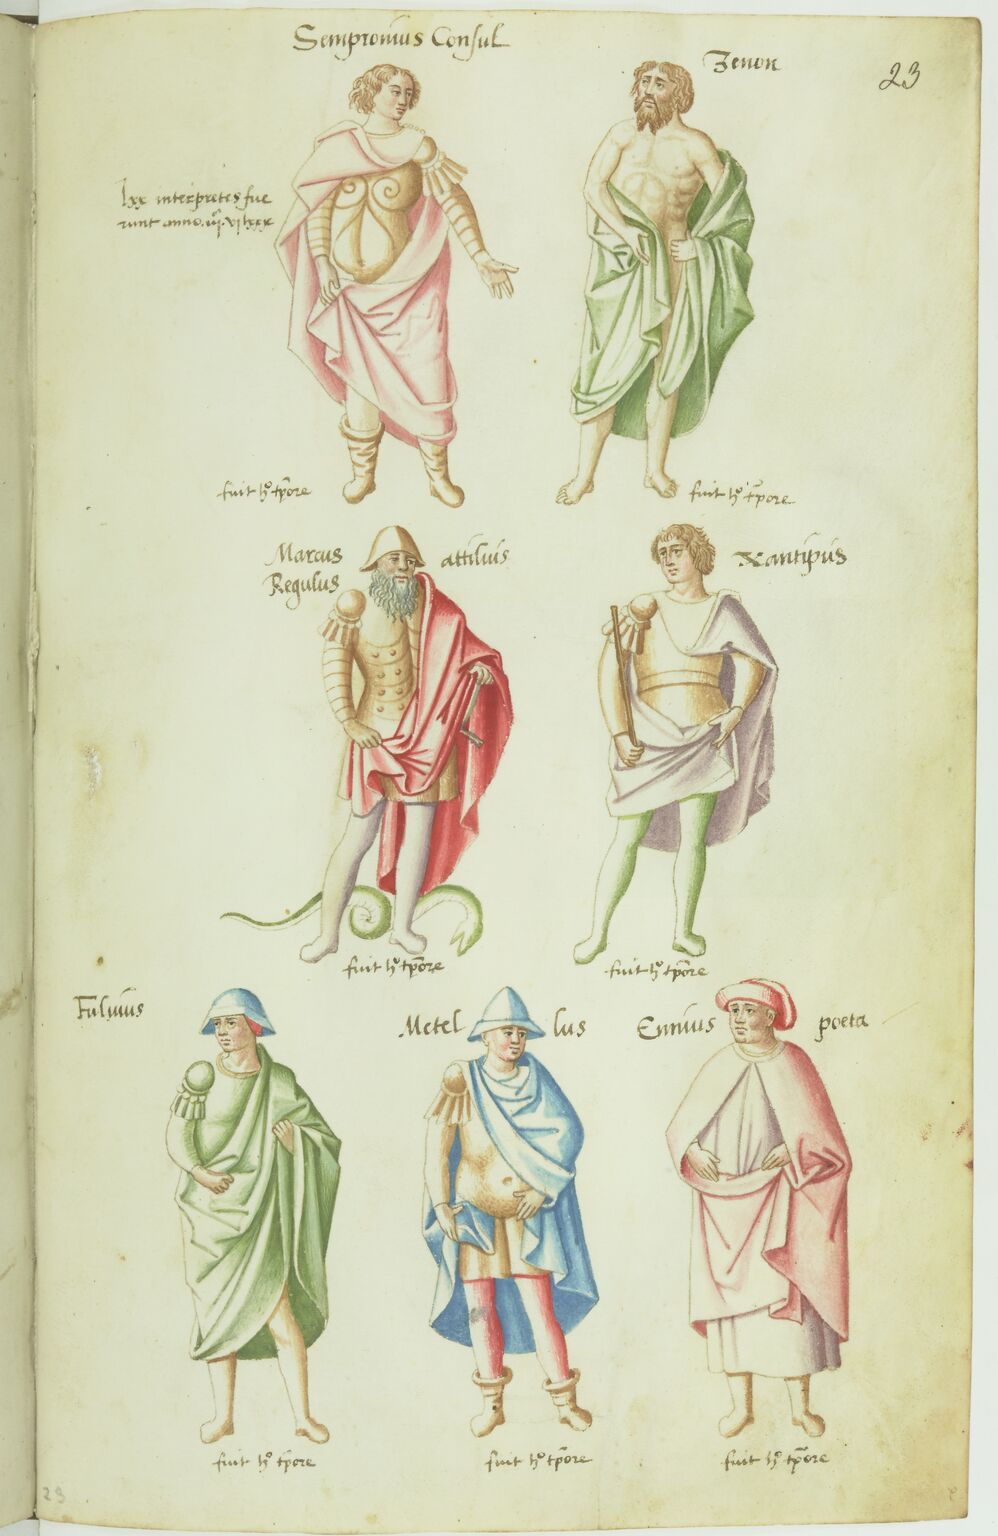 Sempronius Consul
Zenon
23
lxx interpretes fue
runt anno
fuit h° tp̄ore
fuit h° tp̄ore
Marcus attilius
Regulus
Xantipus
fuit h° tp̄ore
fuit h° tp̄ore
Fuluius
Metel lus
Ennius poeta
fuit h° tp̄ore
fuit h° tp̄ore
fuit h° tp̄ore
23